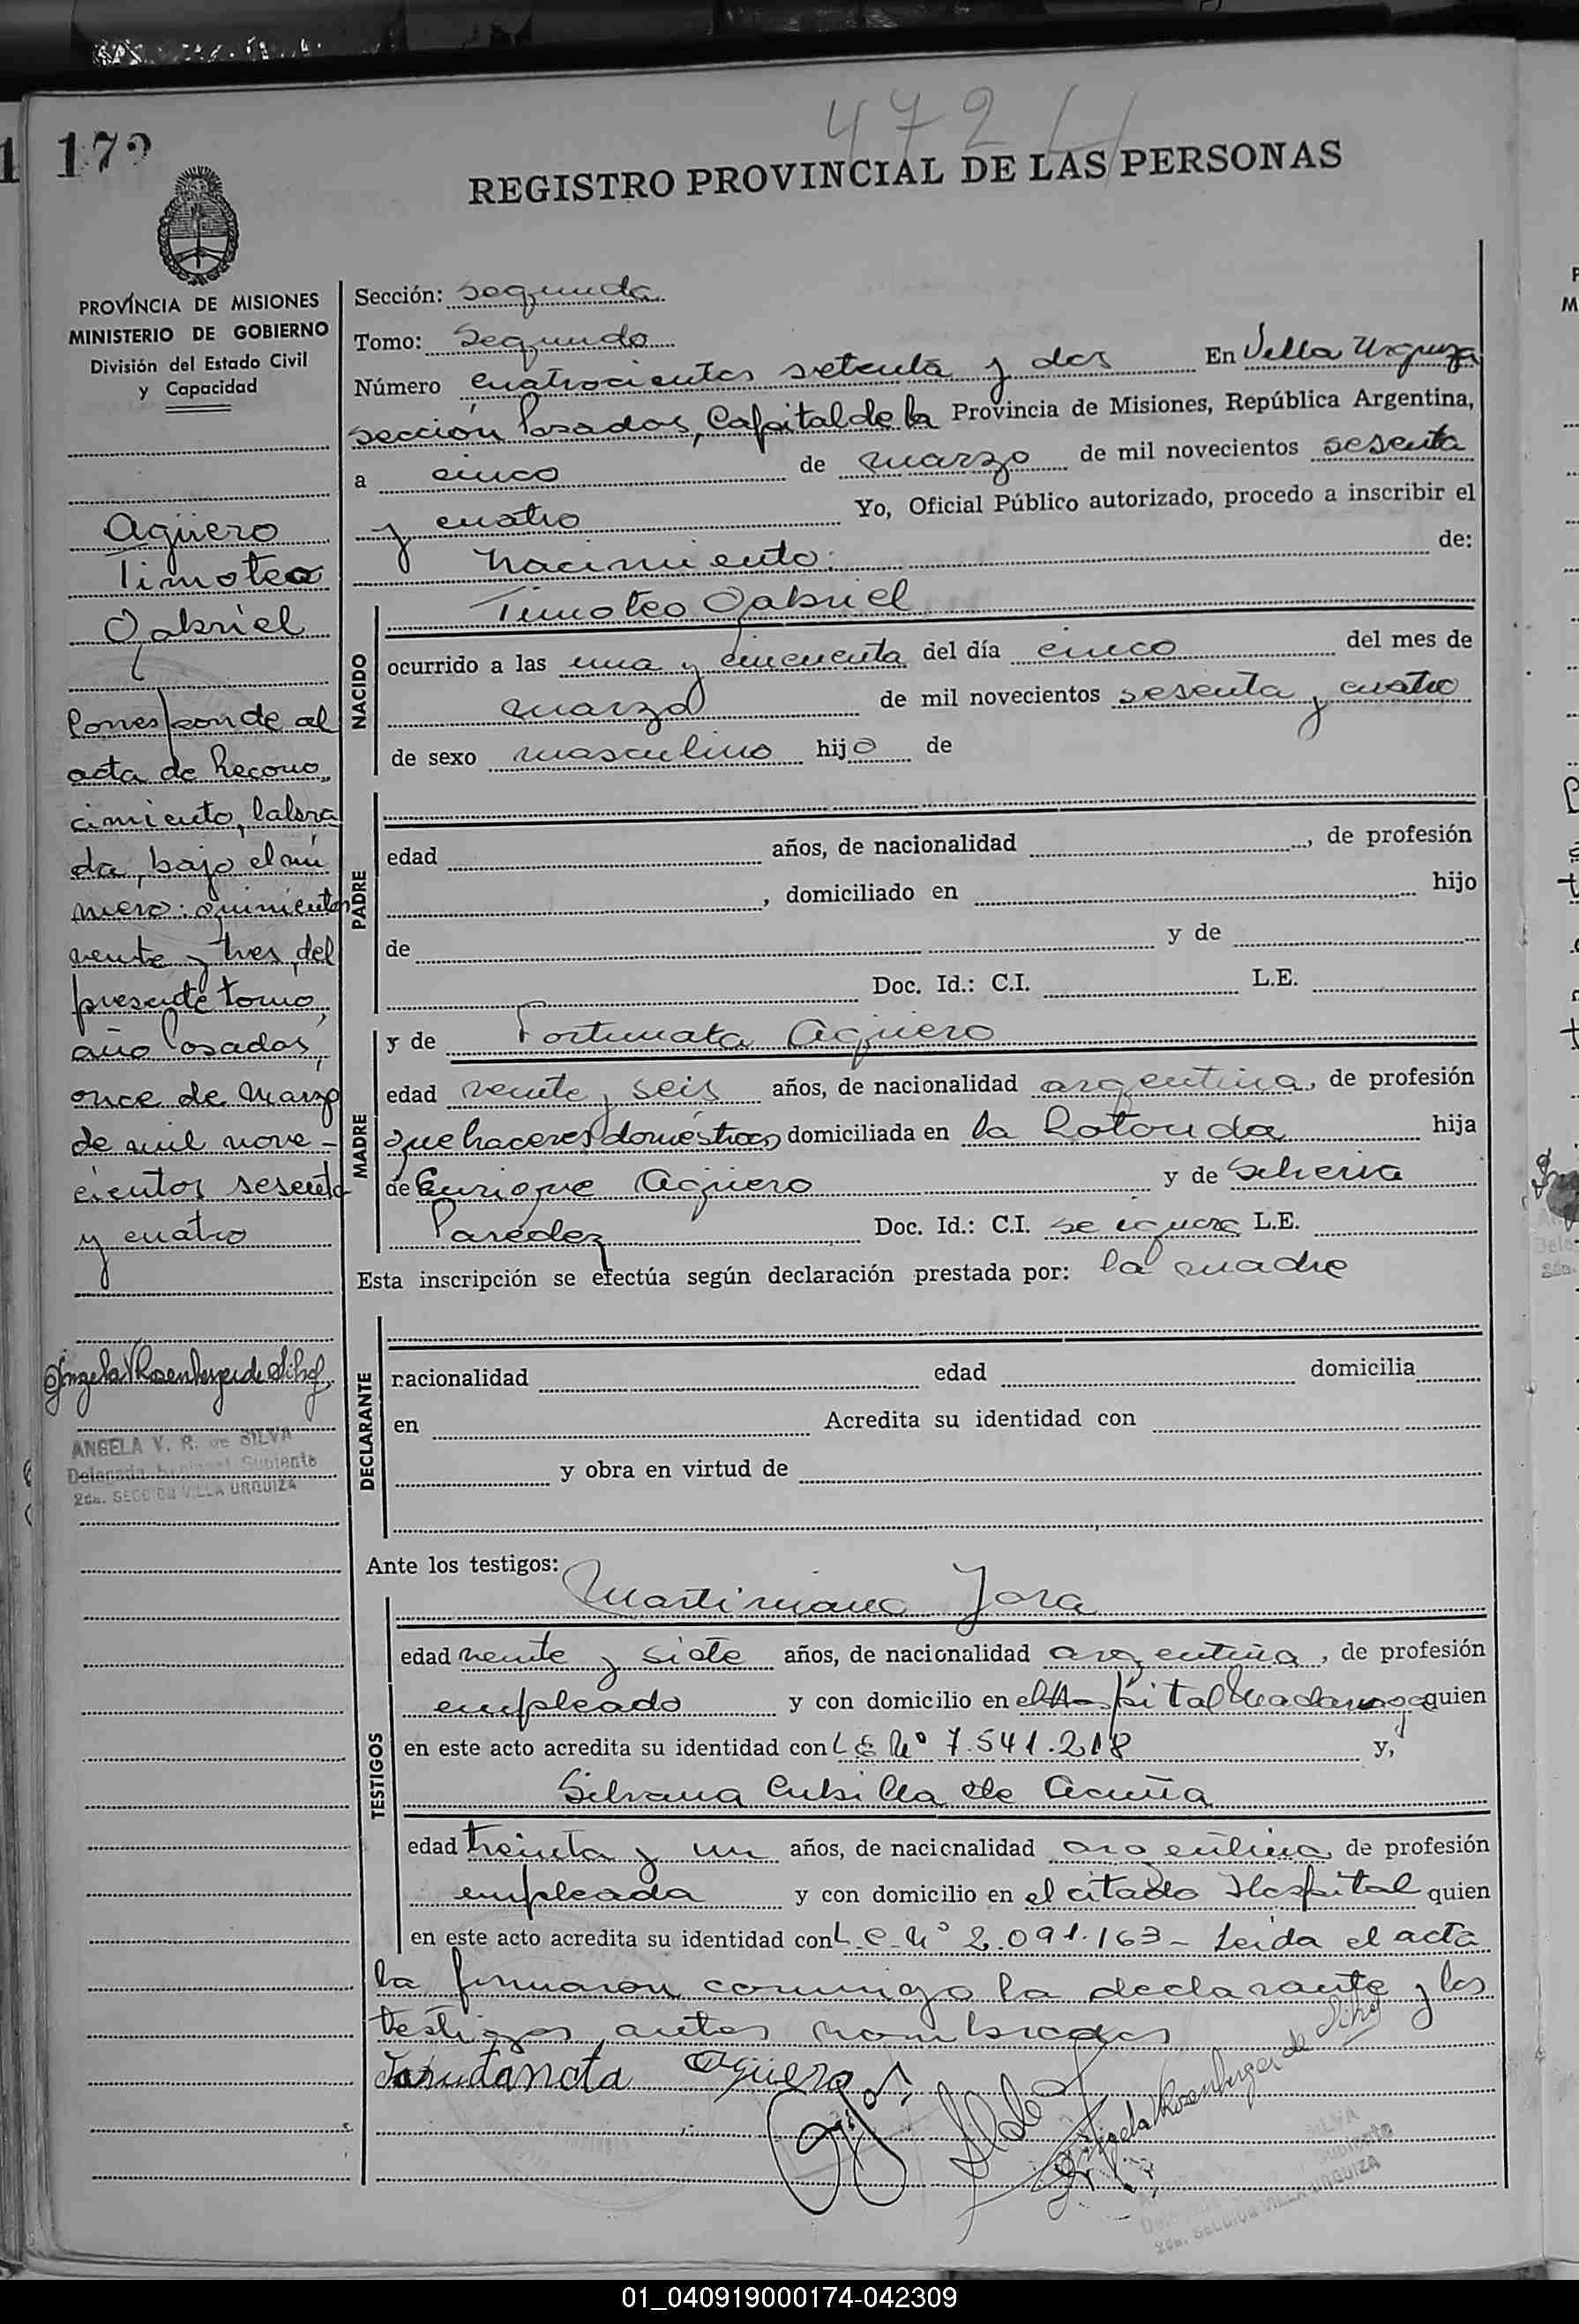 472
172
REGISTRO PROVINCIAL DE LAS PERSONAS
PROVINCIA DE MISIONES
MINISTERIO DE GOBIERNO
División del Estado Civil
y Capacidad
Agüero
Timoteo
Gabriel
Corresponde al
acta de Recono
cimiento, labra
da, bajo el nú
mero: quinientos
veinte y tres, del
presente tomo,
año Posadas,
once de Marzo
de mil nove-
cientos sesenta
y cuatro
Angela V Rosenberger de Silva
ANGELA V. R. de SILVA
Delegada Suplente
2da. SECCION VILLA URQUIZA
Sección: segunda
Tomo: Segundo
Número cuatrocientos setenta y dos En Villa Urquiza
sección Posadas, Capital de la Provincia de Misiones, República Argentina,
a cinco de marzo de mil novecientos sesenta
y cuatro Yo, Oficial Público autorizado, procedo a inscribir el
nacimiento: de:
NACIDO
Timoteo Gabriel
ocurrido a las una y cincuenta del día cinco del mes de
marzo de mil novecientos sesenta y cuatro
de sexo masculino hijo de
PADRE
edad años, de nacionalidad , de profesión
, domiciliado en hijo
de y de
Doc. Id.: C.I. L.E.
MADRE
y de Fortunata Agüero
edad veinte y seis años, de nacionalidad argentina, de profesión
quehaceres domésticos domiciliada en la Rotonda hija
de Enrique Agüero y de Silveria
Paredez Doc. Id.: C.I. se ignora L.E.
Esta inscripción se efectúa según declaración prestada por: la madre
DECLARANTE
racionalidad edad domicilia
en Acredita su identidad con
y obra en virtud de
Ante los testigos:
TESTIGOS
Martimiano Jara
edad veinte y siete años, de nacionalidad argentina, de profesión
empleado y con domicilio en el Hospital Madariaga quien
en este acto acredita su identidad con L E Nº 7.541.218 y,
Silvana Cubilla de Acuña
edad treinta y un años, de nacionalidad argentina de profesión
empleada y con domicilio en el citado Hospital quien
en este acto acredita su identidad con L.C. Nº 2.091.163- Leída el acta
la firmaron conmigo la declarante y los
testigos antes nombrados
Agüero
Angela V Rosenberger de Silva
SILVA
Suplente
2da. SECCION VILLA URQUIZA
01_040919000174-042309